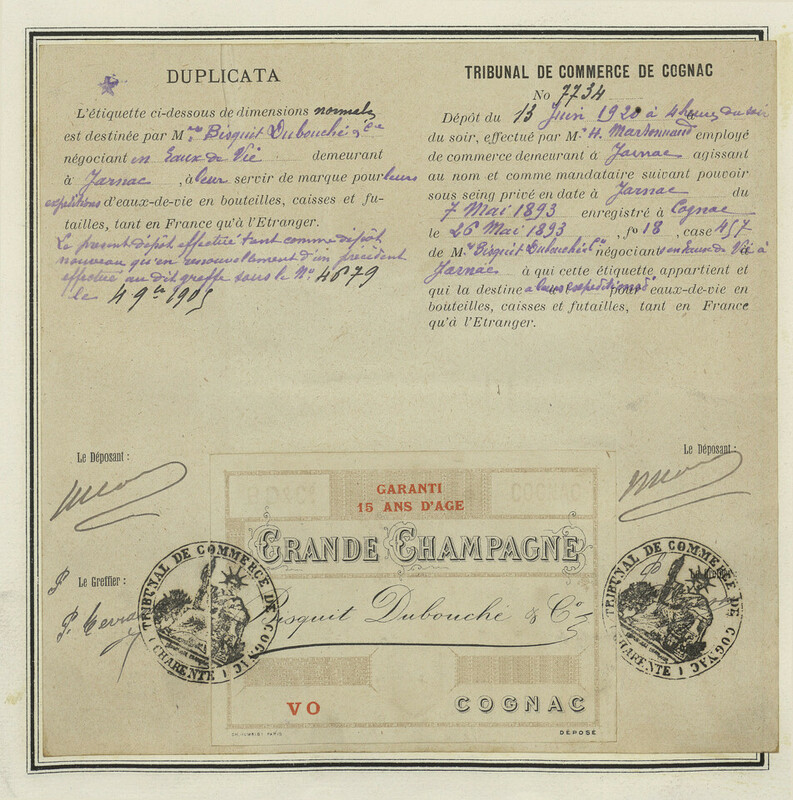 DUPLICATA
L'étiquette ci-dessous de dimensions normales
est destinée par Mrs Bisquit Dubouché & Cie
négociant en Eaux de Vie demeurant
à Jarnac, à leur servir de marque pour leurs
expéditions d'eaux-de-vie en bouteilles, caisses et fu-
tailles, tant en France qu'à l'Etranger.
Le présent dépôt effectué tant comme dépôt
nouveau qu'en renouvellement d'un précédent
effectué au dit greffe sous le No 4679
le 4 9bre 1905
TRIBUNAL DE COMMERCE DE COGNAC
No 7734
Dépôt du 13 Juin 1920 à 4 heures du soir
du soir, effectué par Mr H. employé
de commerce demeurant à Jarnac agissant
au nom et comme mandataire suivant pouvoir
sous seing privé en date à Jarnac du
7 Mai 1893 enregistré à Cognac
le 26 Mai 1893, fo 18, case 457
de Mrs Bisquit Dubouché & Co négociants en Eaux de Vie à
Jarnac à qui cette étiquette appartient et
qui la destine à leurs expéditions d'eaux-de-vie en
bouteilles, caisses et futailles, tant en France
qu'à l'Etranger.
Le Déposant :
Le Déposant :
Le Greffier :
TRIBUNAL DE COMMERCE DE COGNAC
(CHARENTE)
TRIBUNAL DE COMMERCE DE COGNAC
(CHARENTE)
GARANTI
15 ANS D'AGE
GRANDE CHAMPAGNE
Bisquit Dubouché & Co
VO
COGNAC
PARIS
DÉPOSÉ